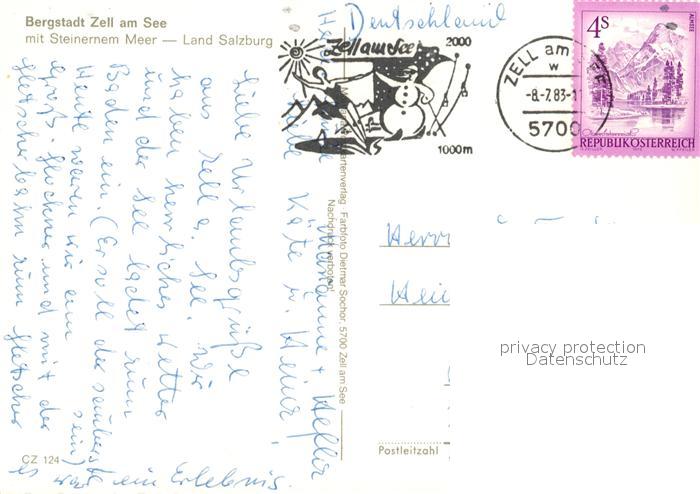 Bergstadt Zell am See
mit Steinernem Meer — Land Salzburg
Deutschland
Zell am See
2000
1000 m
ZELL am
-8.-7.83-1
5700
4S
ALMSEE
REPUBLIK ÖSTERREICH
Liebe Urlaubsgrüße
aus Zell a. See. Wir
haben herrliches Wetter
und der See ladet zum
Baden ein. (Er soll die sauberste
sein)
Heute waren wir am
Groß-Glockner und mit der
Gletscherbahn zum Gletscher
es war ein Erlebnis.
Käte u. Heinz
Marianne +
Farbfoto Dietmar Sochor, 5700 Zell am See
Nachdruck verboten!
Herrn
Hein
privacy protection
Datenschutz
Postleitzahl
CZ 124